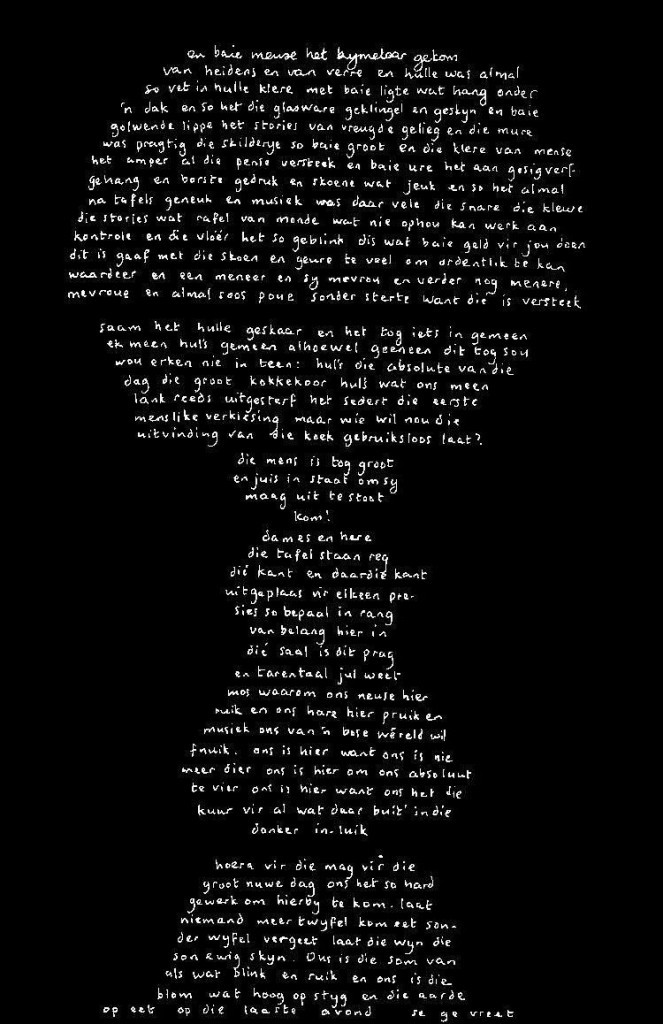 en baie mense het bymekaar gekom
van heidens en van verre en hulle was almal
so vet in hulle klere met baie ligte wat hang onder
'n dak en so het die glasware geklingel en geskyn en baie
golwende lippe het stories van vreugde gelieg en die mure
was pragtig die skilderye so baie groot en die klere van mense
het amper al die pense versteek en baie ure het aan gesigverf-
gehang en borste gedruk en skoene wat jeuk en so het almal
na tafels geneuk en musiek was daar vele die snare die kleure
die stories wat rafel van monde wat nie ophou kan werk aan
kontrole en die vloër het so geblink dis wat baie geld vir jou doen
dit is gaaf met die skoen en geure te veel om ordentlik te kan
waardeer en een meneer en sy mevrou en verder nog menere,
mevroue en almal soos poue sonder sterte want dié is versteek
saam het hulle geskaar en het tog iets in gemeen
ek meen hul's gemeen alhoewel geeneen dit tog sou
wou erken nie in teen: hul's die absolute van die
dag die groot kokkekoor hul's wat ons meen
lank reeds uitgesterf het sedert die eerste
menslike verkiesing maar wie wil nou die
uitvinding van die koek gebruiksloos laat?
die mens is tog groot
en juis in staat om sy
maag uit te stoot
kom!
dames en here
die tafel staan reg
dié kant en daardie kant
uitgeplaas vir elkeen pre-
sies so bepaal in rang
van belang hier in
dié saal is dit prag
en tarentaal jul weet
mos waarom ons neuse hier
ruik en ons hare hier pruik en
musiek ons van 'n bose wêreld wil
fnuik. ons is hier want ons is nie
meer dier ons is hier om ons absoluut
te vier ons is hier want ons het die
kuur vir al wat daar buit' in die
donker in-luik
hoera vir die mag vir die
groot nuwe dag ons het so hard
gewerk om hierby te kom. laat
niemand meer twyfel kom eet son-
der wyfel vergeet laat die wyn die
son ewig skyn. Ons is die som van
als wat blink en ruik en ons is die
blom wat hoog op styg en die aarde
op eet op die laaste avond se ge vreet